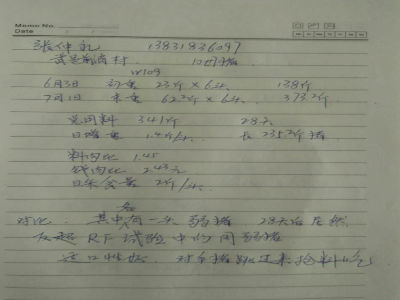 Memo No.
Date
张仲礼 13831836097
武邑 村 10日猪
W109
6月3日 初重 23斤×6头 138斤
7月1日 末重 62.2斤×6头 373.2斤
总用料 341斤 28天
日增重 1.4斤/头 长235.2斤猪
料肉比 1.45
钱肉比 2.43元
日采食量 2斤/头
对比 其中有一头弱猪 28天后居然
反超RF试验中的同窝猪
适口性好，对旁猪跳过来抢料吃